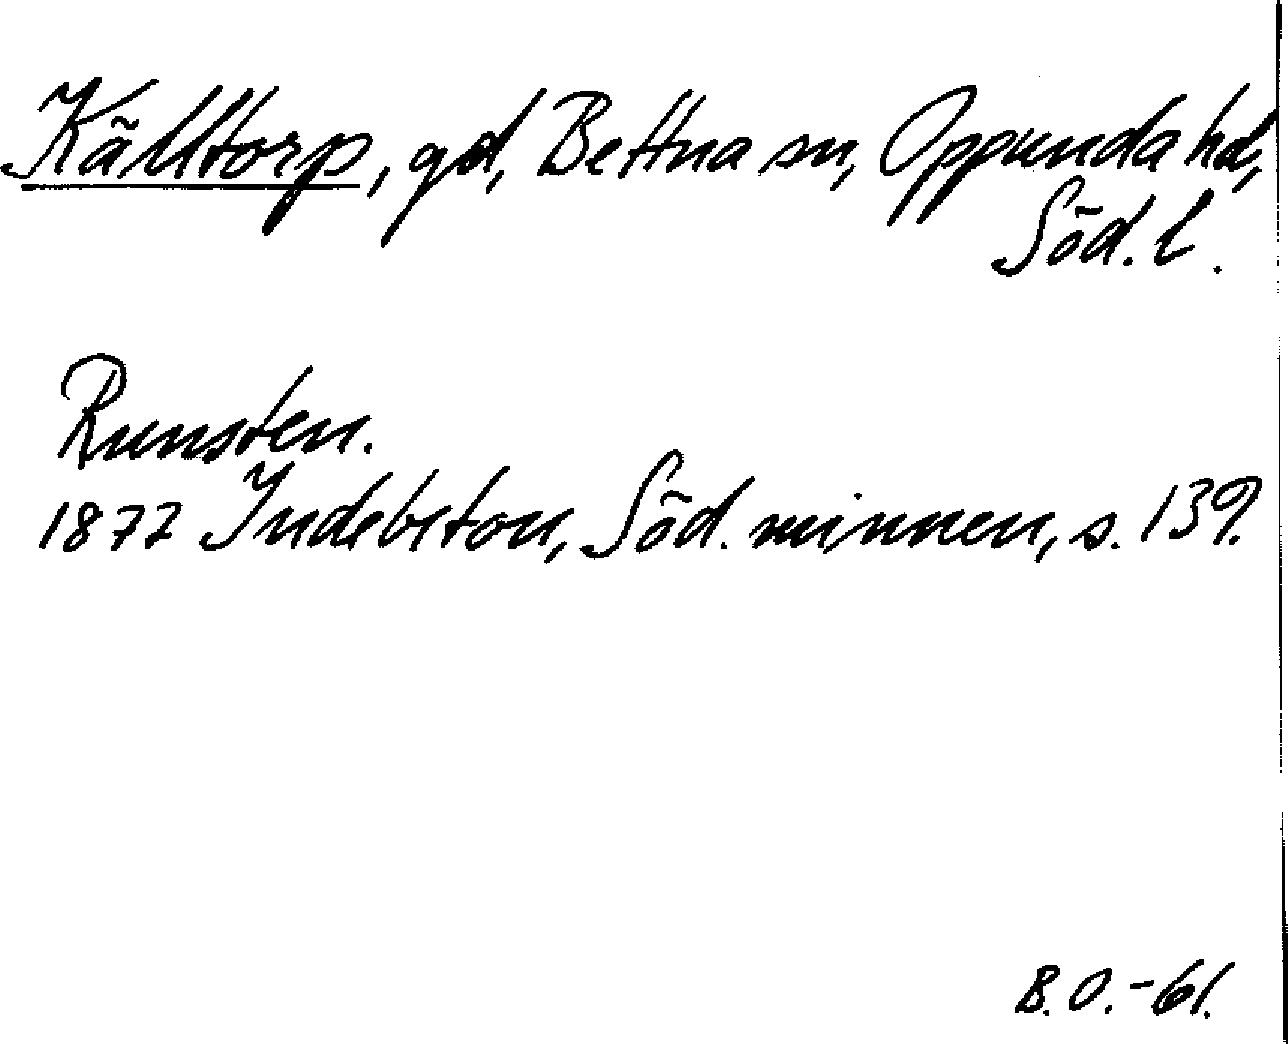 Källtorp, gd, Bettna sn, Oppunda hd,
Söd. l.
Runsten.
1877 Indebetou, Söd. minnen, s. 139.
B.O.-61.